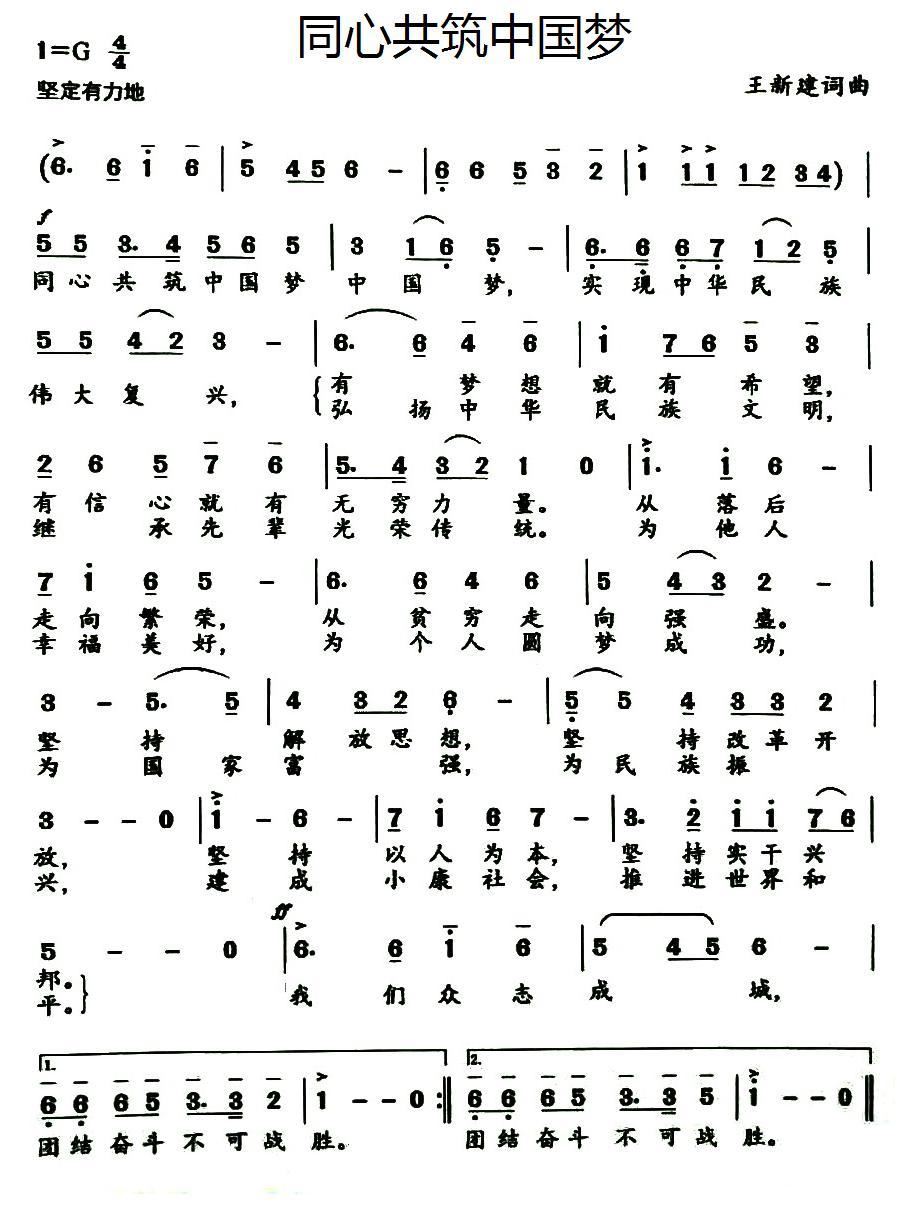 同心共筑中国梦
1=G 4/4
坚定有力地
王新建词曲
(6. 6 1 6 | 5 45 6 - | 6 6 5 3 2 | 1 11 12 34) |
f
55 3.4 56 5 | 3 16 5 - | 6.6 67 12 5 |
同心共筑中国梦 中国梦, 实现中华民族
55 42 3 - | 6. 6 4 6 | 1 76 5 3 |
伟大复兴, { 有梦想就有希望,
弘扬中华民族文明,
2 6 5 7 6 | 5.4 32 1 0 | 1. 1 6 - |
有信心就有无穷力量。从落后
继承先辈光荣传统。为他人
7 1 6 5 - | 6. 6 4 6 | 5 43 2 - |
走向繁荣, 从贫穷走向强盛。
幸福美好, 为个人圆梦成功,
3 - 5. 5 | 4 32 6 - | 5 5 4 33 2 |
坚持解放思想, 坚持改革开
为国家富强, 为民族振
3 - - 0 | 1 - 6 - | 7 1 6 7 - | 3. 2 11 76 |
放, 坚持以人为本, 坚持实干兴
兴, 建成小康社会, 推进世界和
ff
5 - - 0 | 6. 6 1 6 | 5 45 6 - |
邦。
平。} 我们众志成城,
1. 2.
66 65 3.3 2 | 1 - - 0 :‖ 66 65 3.3 5 | 1 - - 0 ‖
团结奋斗不可战胜。 团结奋斗不可战胜。